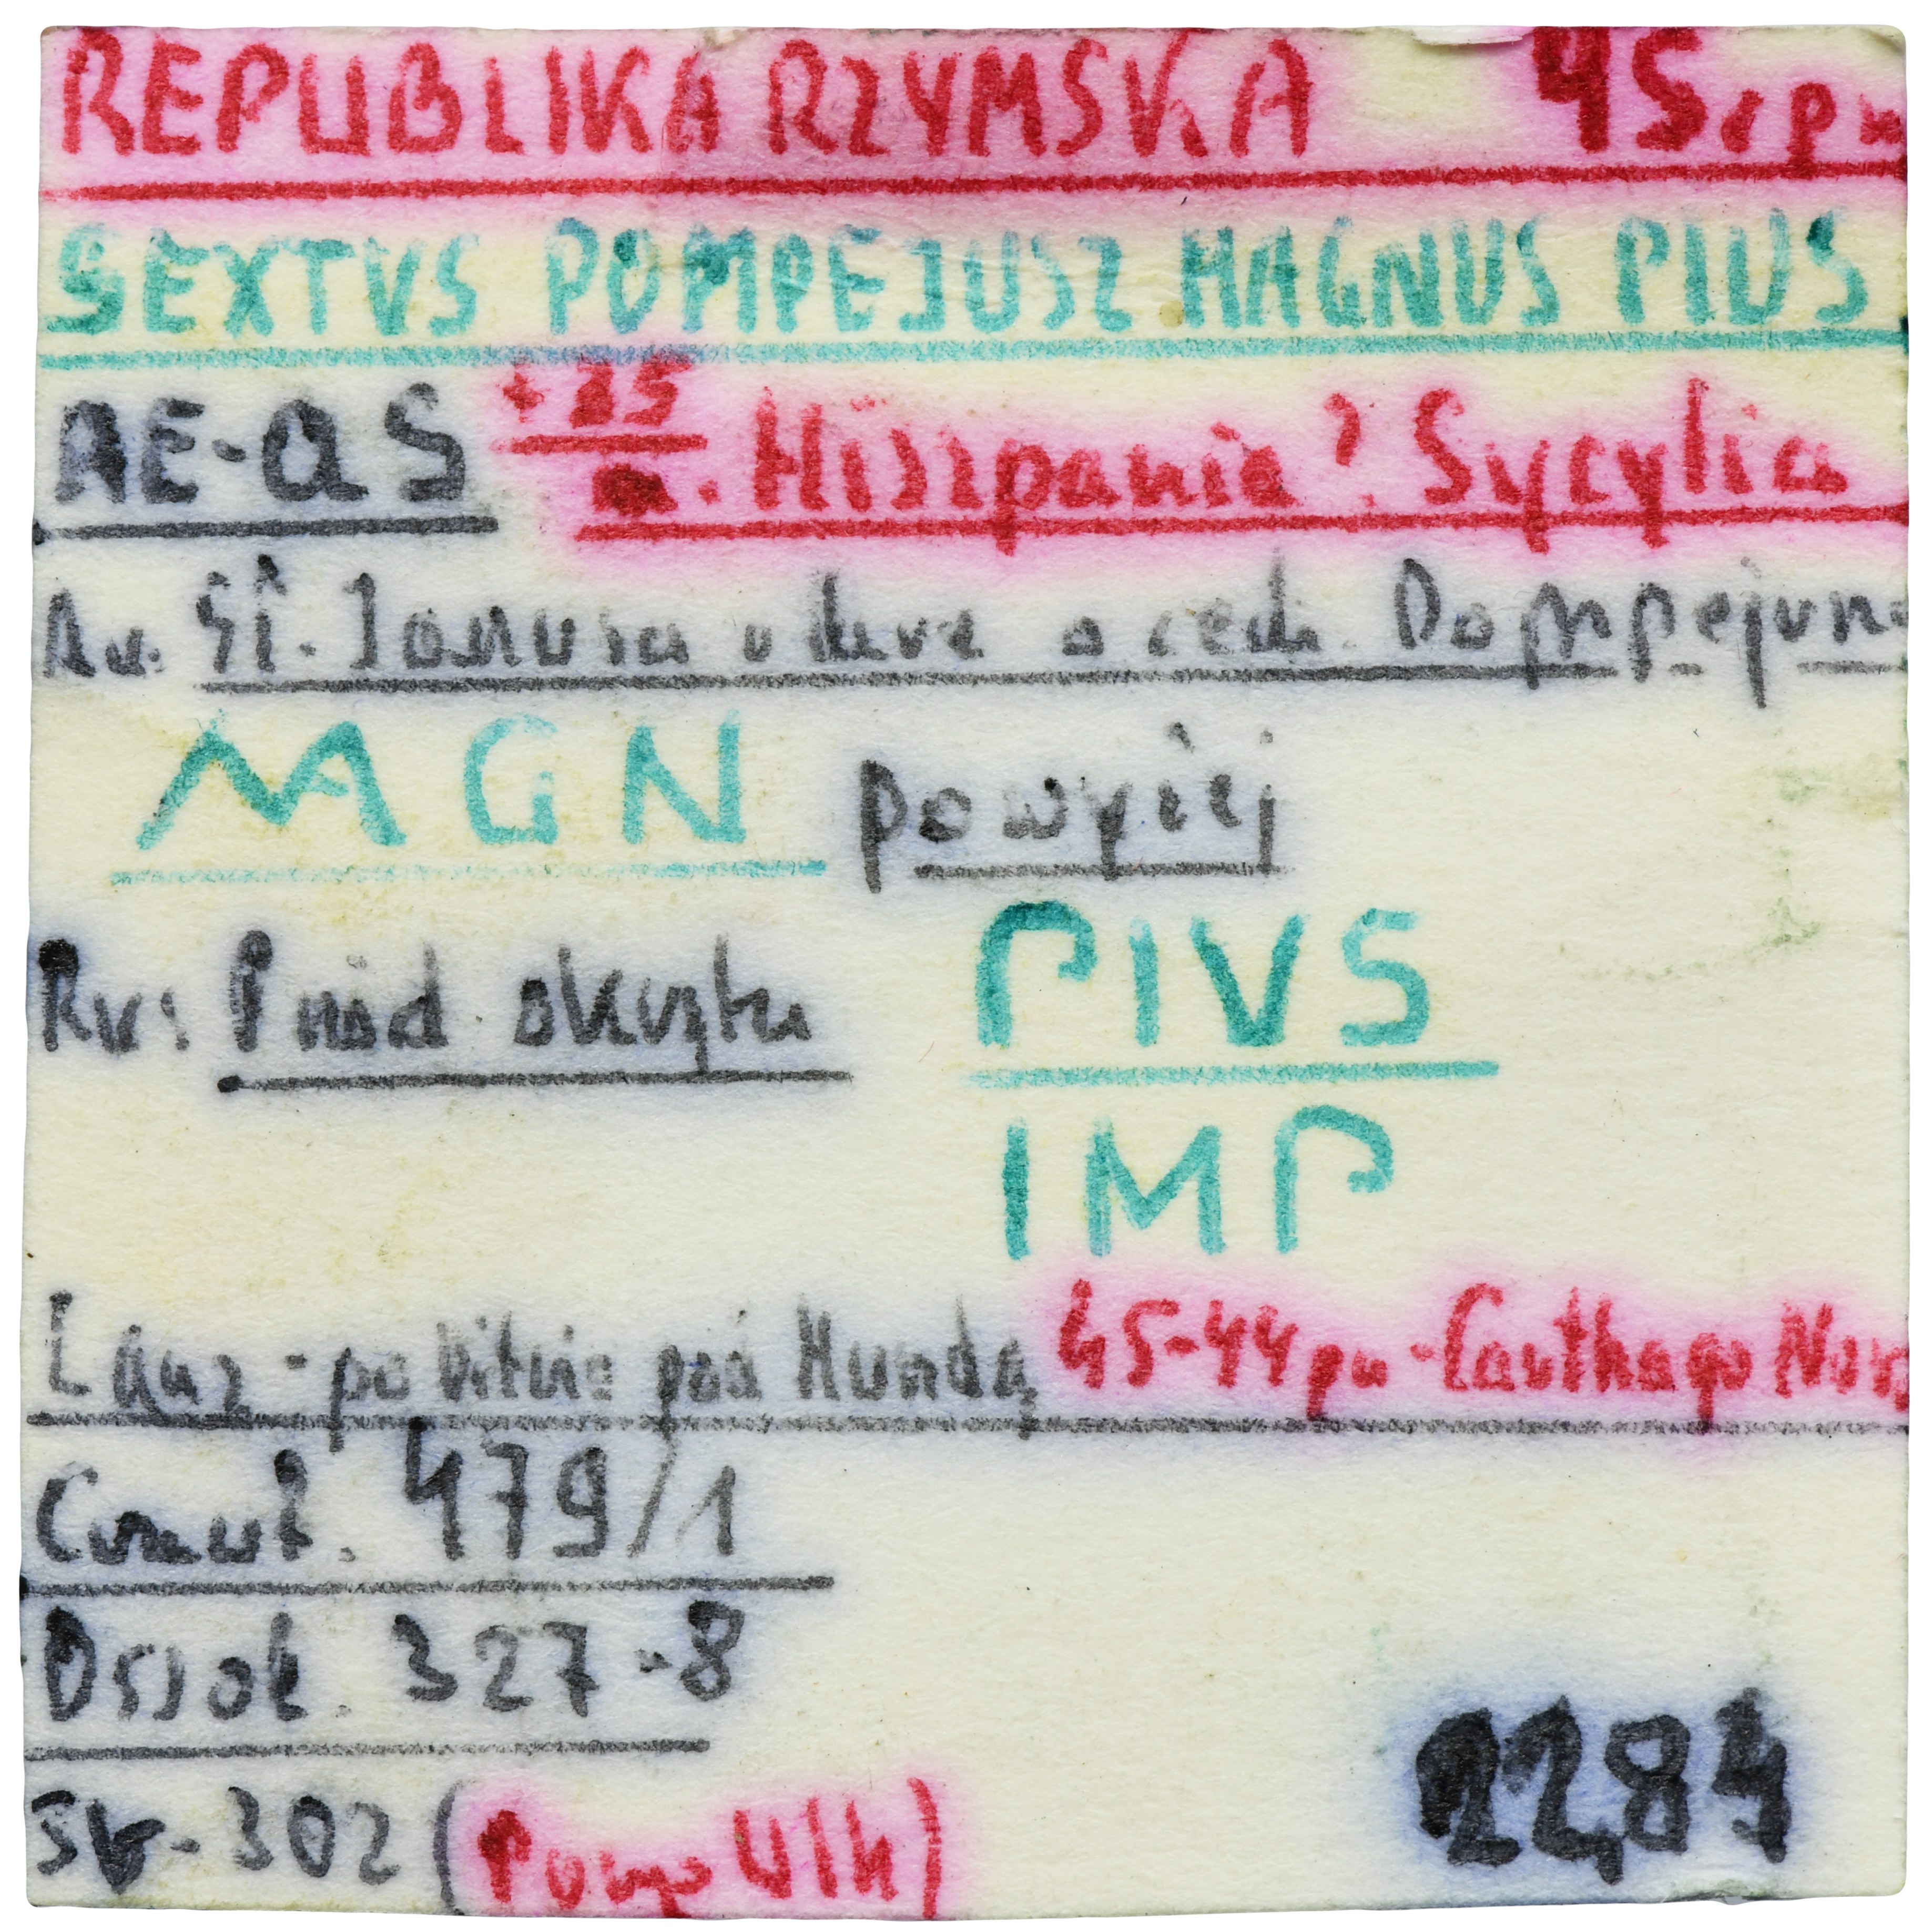 REPUBLIKA RZYMSKA 45 r p n
SEXTVS POMPEJUSZ MAGNUS PIUS
AE-AS +35 . Hiszpania? Sycylia
Av. Gł. Janusa o cech. Pompejusza
MGN powyżej
Rv: Przód okrętu PIVS
IMP
po bitwie pod Mundą 45-44 pn - Carthago Nova
Crawf. 479/1
Ossol. 327-8
302 (
22,84